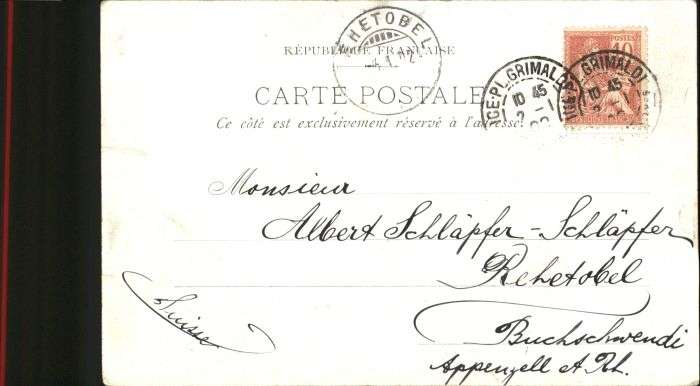 RHETOBEL
RÉPUBLIQUE FRANÇAISE
10
POSTES
CARTE POSTALE
Ce côté est exclusivement réservé à l'adresse.
PL. GRIMALDI
10 45
2 - 1
PL. GRIMALDI
10 45
Monsieur
Albert Schläpfer-Schläpfer
Rehetobel
Buchschwendi
Appenzell A Rh.
Suisse